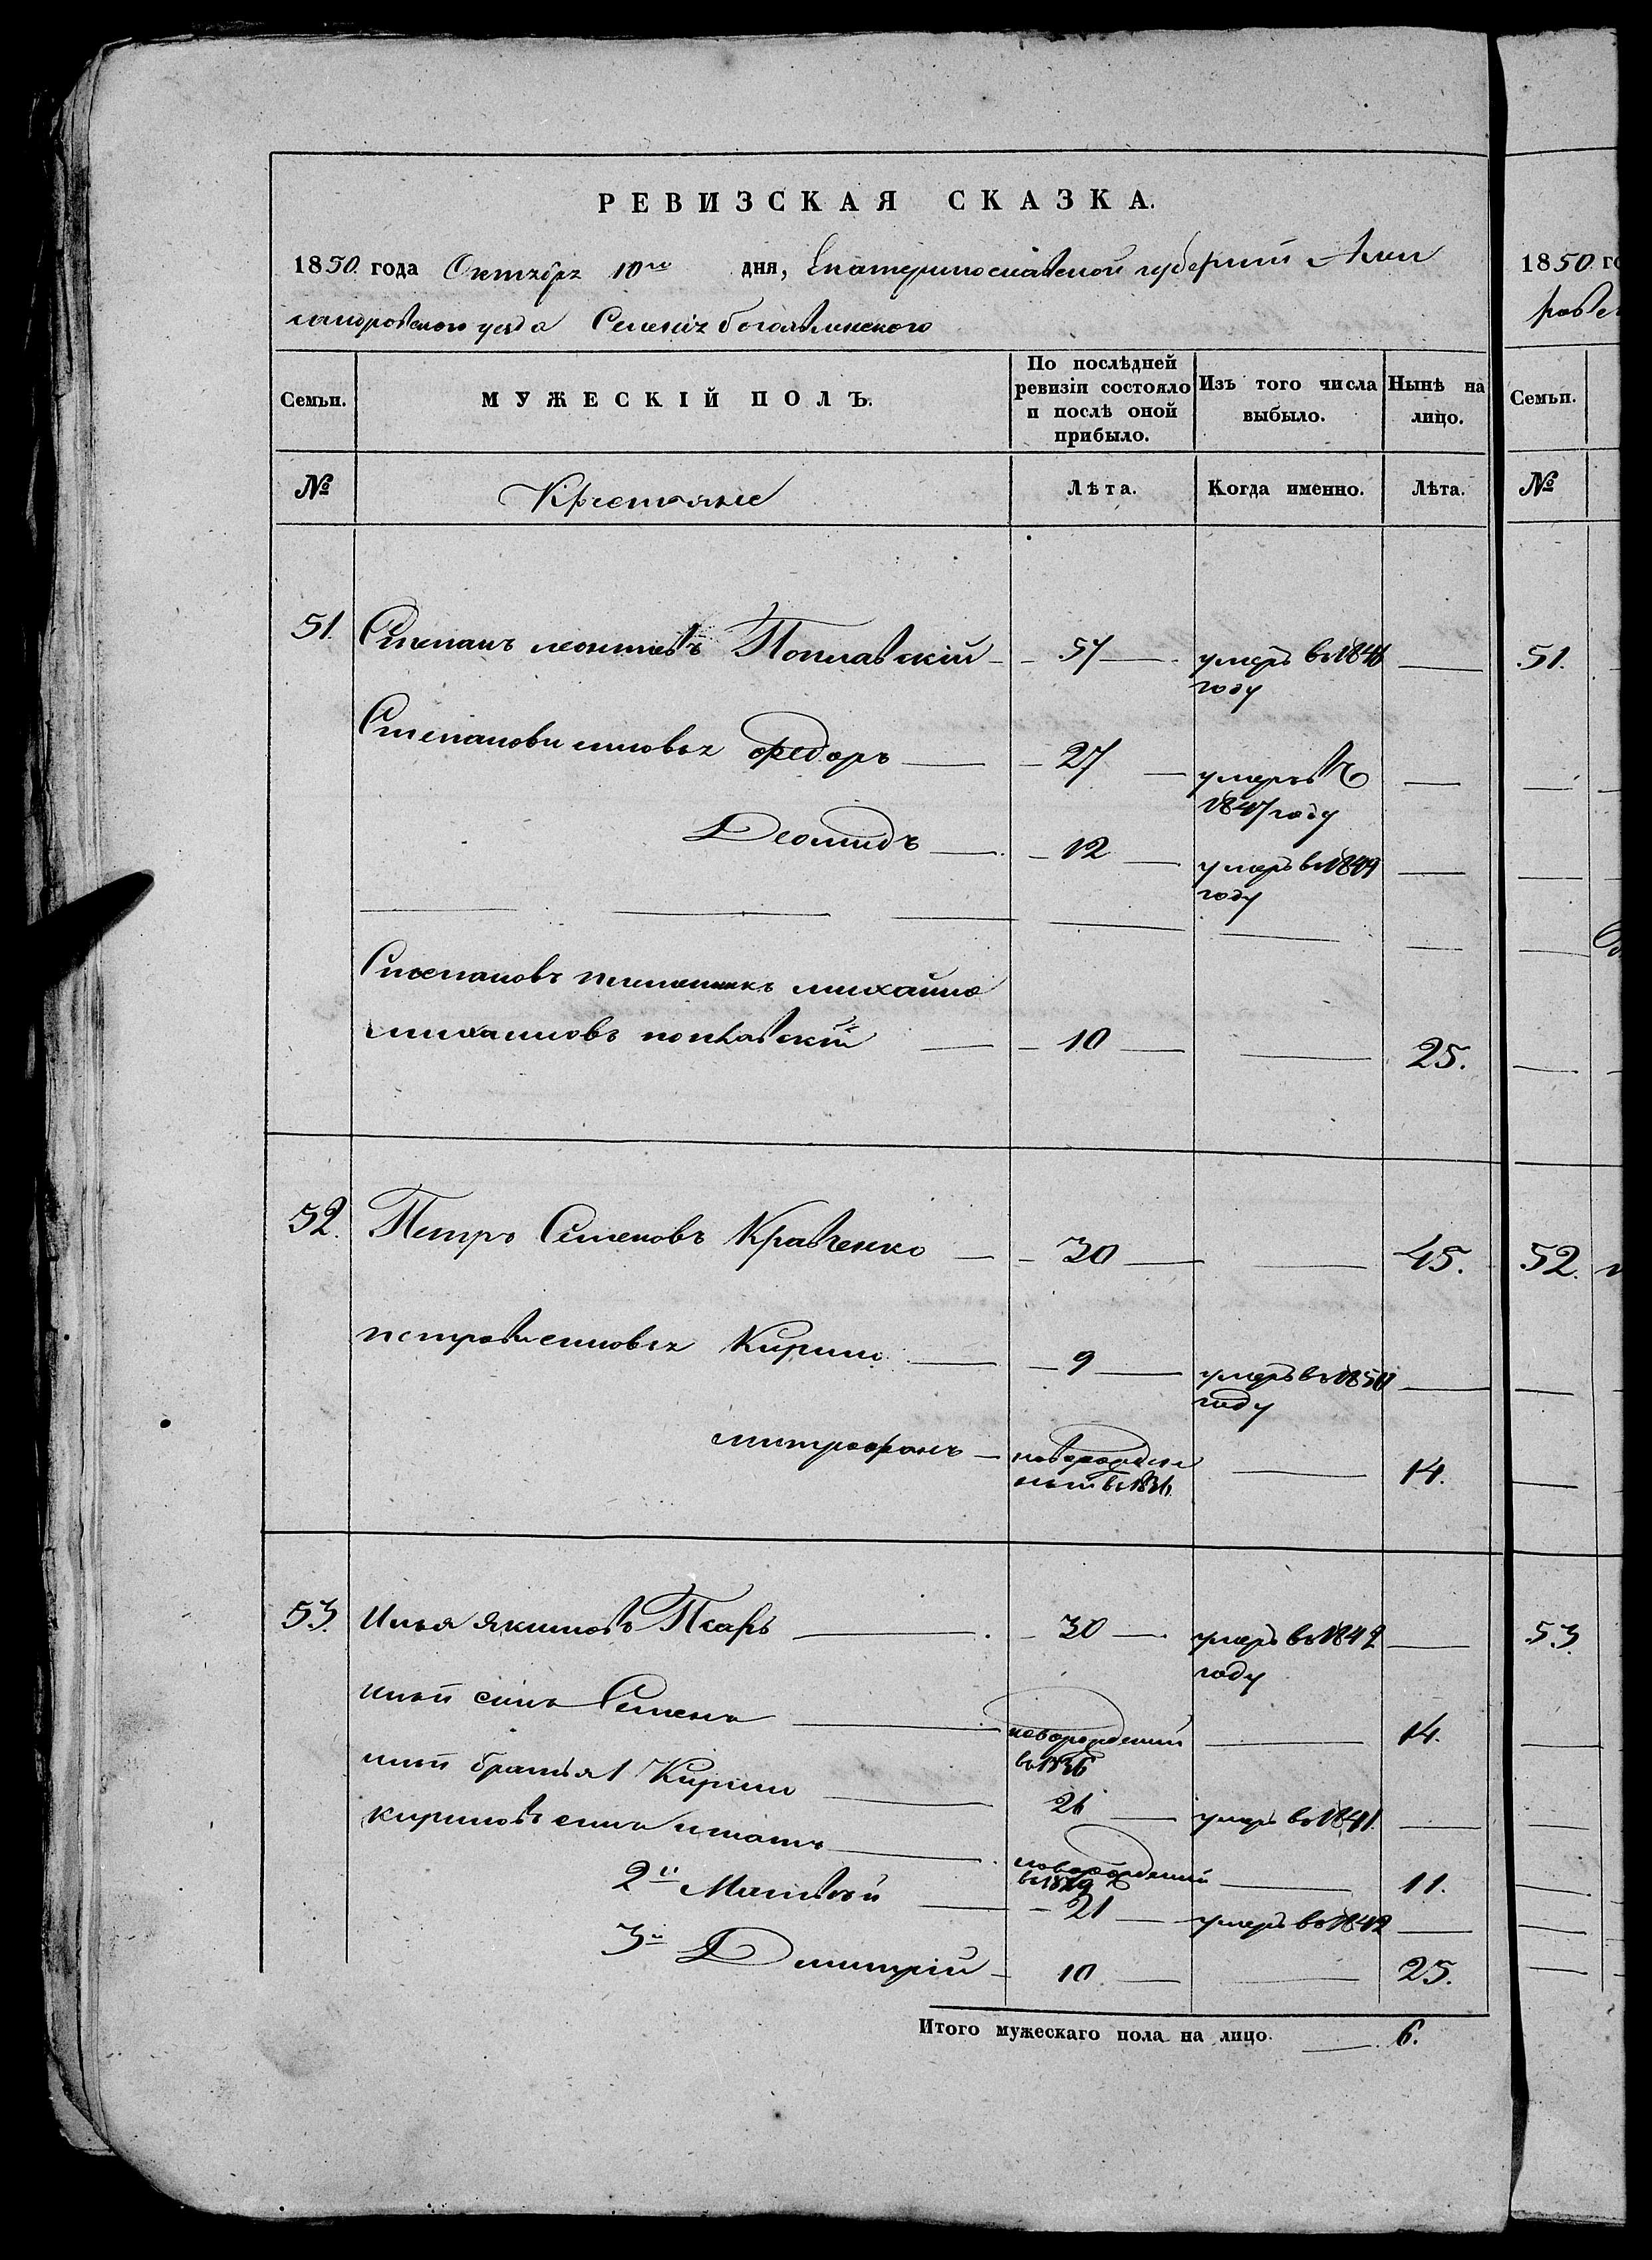 РЕВИЗСКАЯ СКАЗКА.
1850 года Октября 10го дня, Екатеринославской губерніи Алек
сандровского уезда Селенія богоявленского
Семьи. МУЖЕСКІЙ ПОЛЪ. По послѣдней ревизіи состояло и послѣ оной прибыло. Изъ того числа выбыло. Нынѣ на лицо.
№ Крестьяне Лѣта. Когда именно. Лѣта.
51. Степанъ леонтьевъ Поплавскій 57 умеръ въ 1846
году
Степановы сыновья Федоръ 27 умеръ въ
1847 году
Деомидъ 12 умеръ въ 1849
году
Степановъ племянникъ михайло
михайловъ поплавскій 10 25.
52. Петръ Семеновъ Кравченко 30 45.
петровы сыновья Кирило 9 умеръ въ 1850
году
митрофанъ новорожден
ный въ 1836 14.
53. Илья Якимовъ Псарь 30 умеръ въ 1842
году
ильи сынъ Семенъ новорожденный
въ 1836 14.
ильи братья 1 Кирило 26 умеръ въ 1841.
кириловъ сынъ игнатъ новорожденный
въ 1839 11.
2й Матвѣй 21 умеръ въ 1842
3й Дмитрій 10 25.
Итого мужескаго пола на лицо. 6.
1850 го
Семьи.
№
51.
52.
53